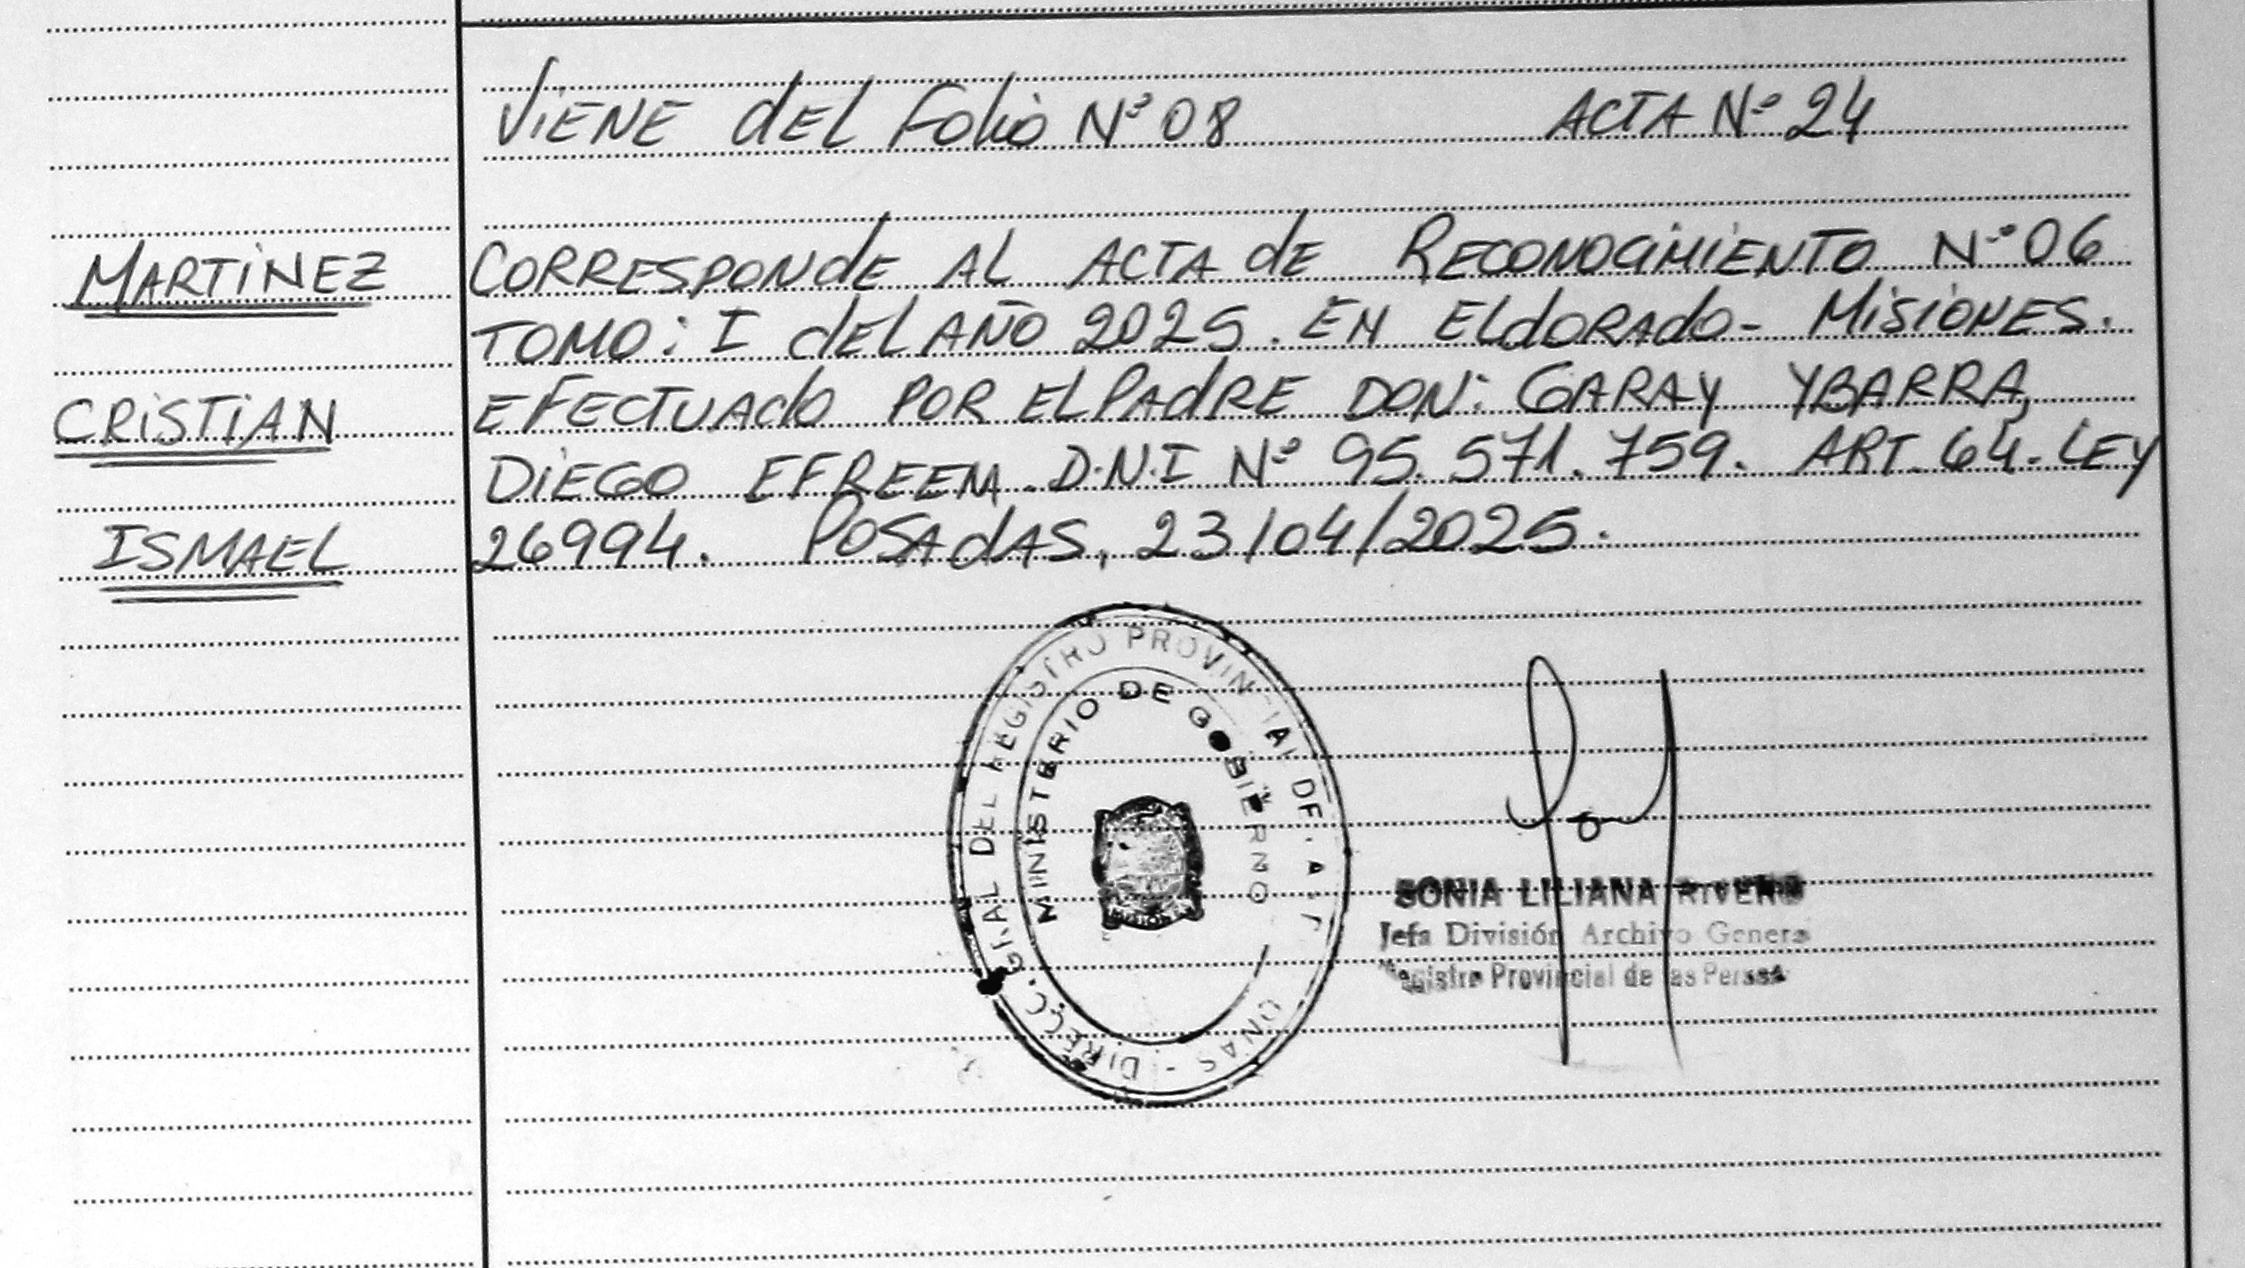 VIENE dEL FOLIO Nº 08 ACTA Nº 24
MARTINEZ
CRISTIAN
ISMAEL
CORRESPONdE AL ACTA dE RECONOCIMIENTO Nº 06
TOMO: I dEL AÑO 2025. EN ELdORAdO- MISIONES.
EFECTUAdO POR EL PAdRE DON: GARAY YBARRA,
DIEGO EFREEM. D.N.I Nº 95.571.759. ART. 64. LEY
26994. POSAdAS, 23/04/2025.
DIRECC. GRAL DEL REGISTRO PROVINCIAL DE
MINISTERIO DE GOBIERNO
SONIA LILIANA RIVERO
Jefa División Archivo General
Registro Provincial de las Personas